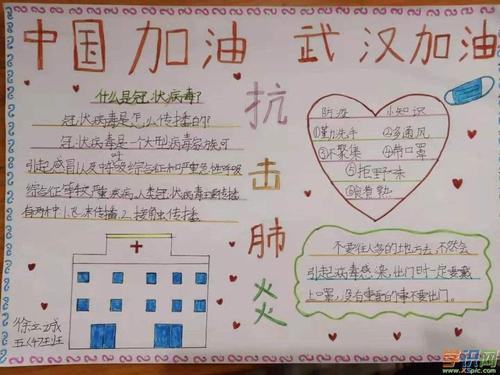 中国加油 武汉加油
抗击肺炎
什么是冠状病毒?
冠状病毒是怎么传播的?
冠状病毒是一个大型病毒家族可
引起感冒以及呼吸综合征和严重急性呼吸
综合征等较严重疾病人类冠状病毒主要传播
有两种1.飞沫传播2.接触传播
防治 小知识
①勤洗手 ②多通风
③不聚集 ④带口罩
⑤拒野味
⑥食煮熟
不要往人多的地方去,不然会
引起病毒感染,出门时一定要戴
上口罩,没有重要的事不要出门。
五(4)班
学识网
www.xspic.com